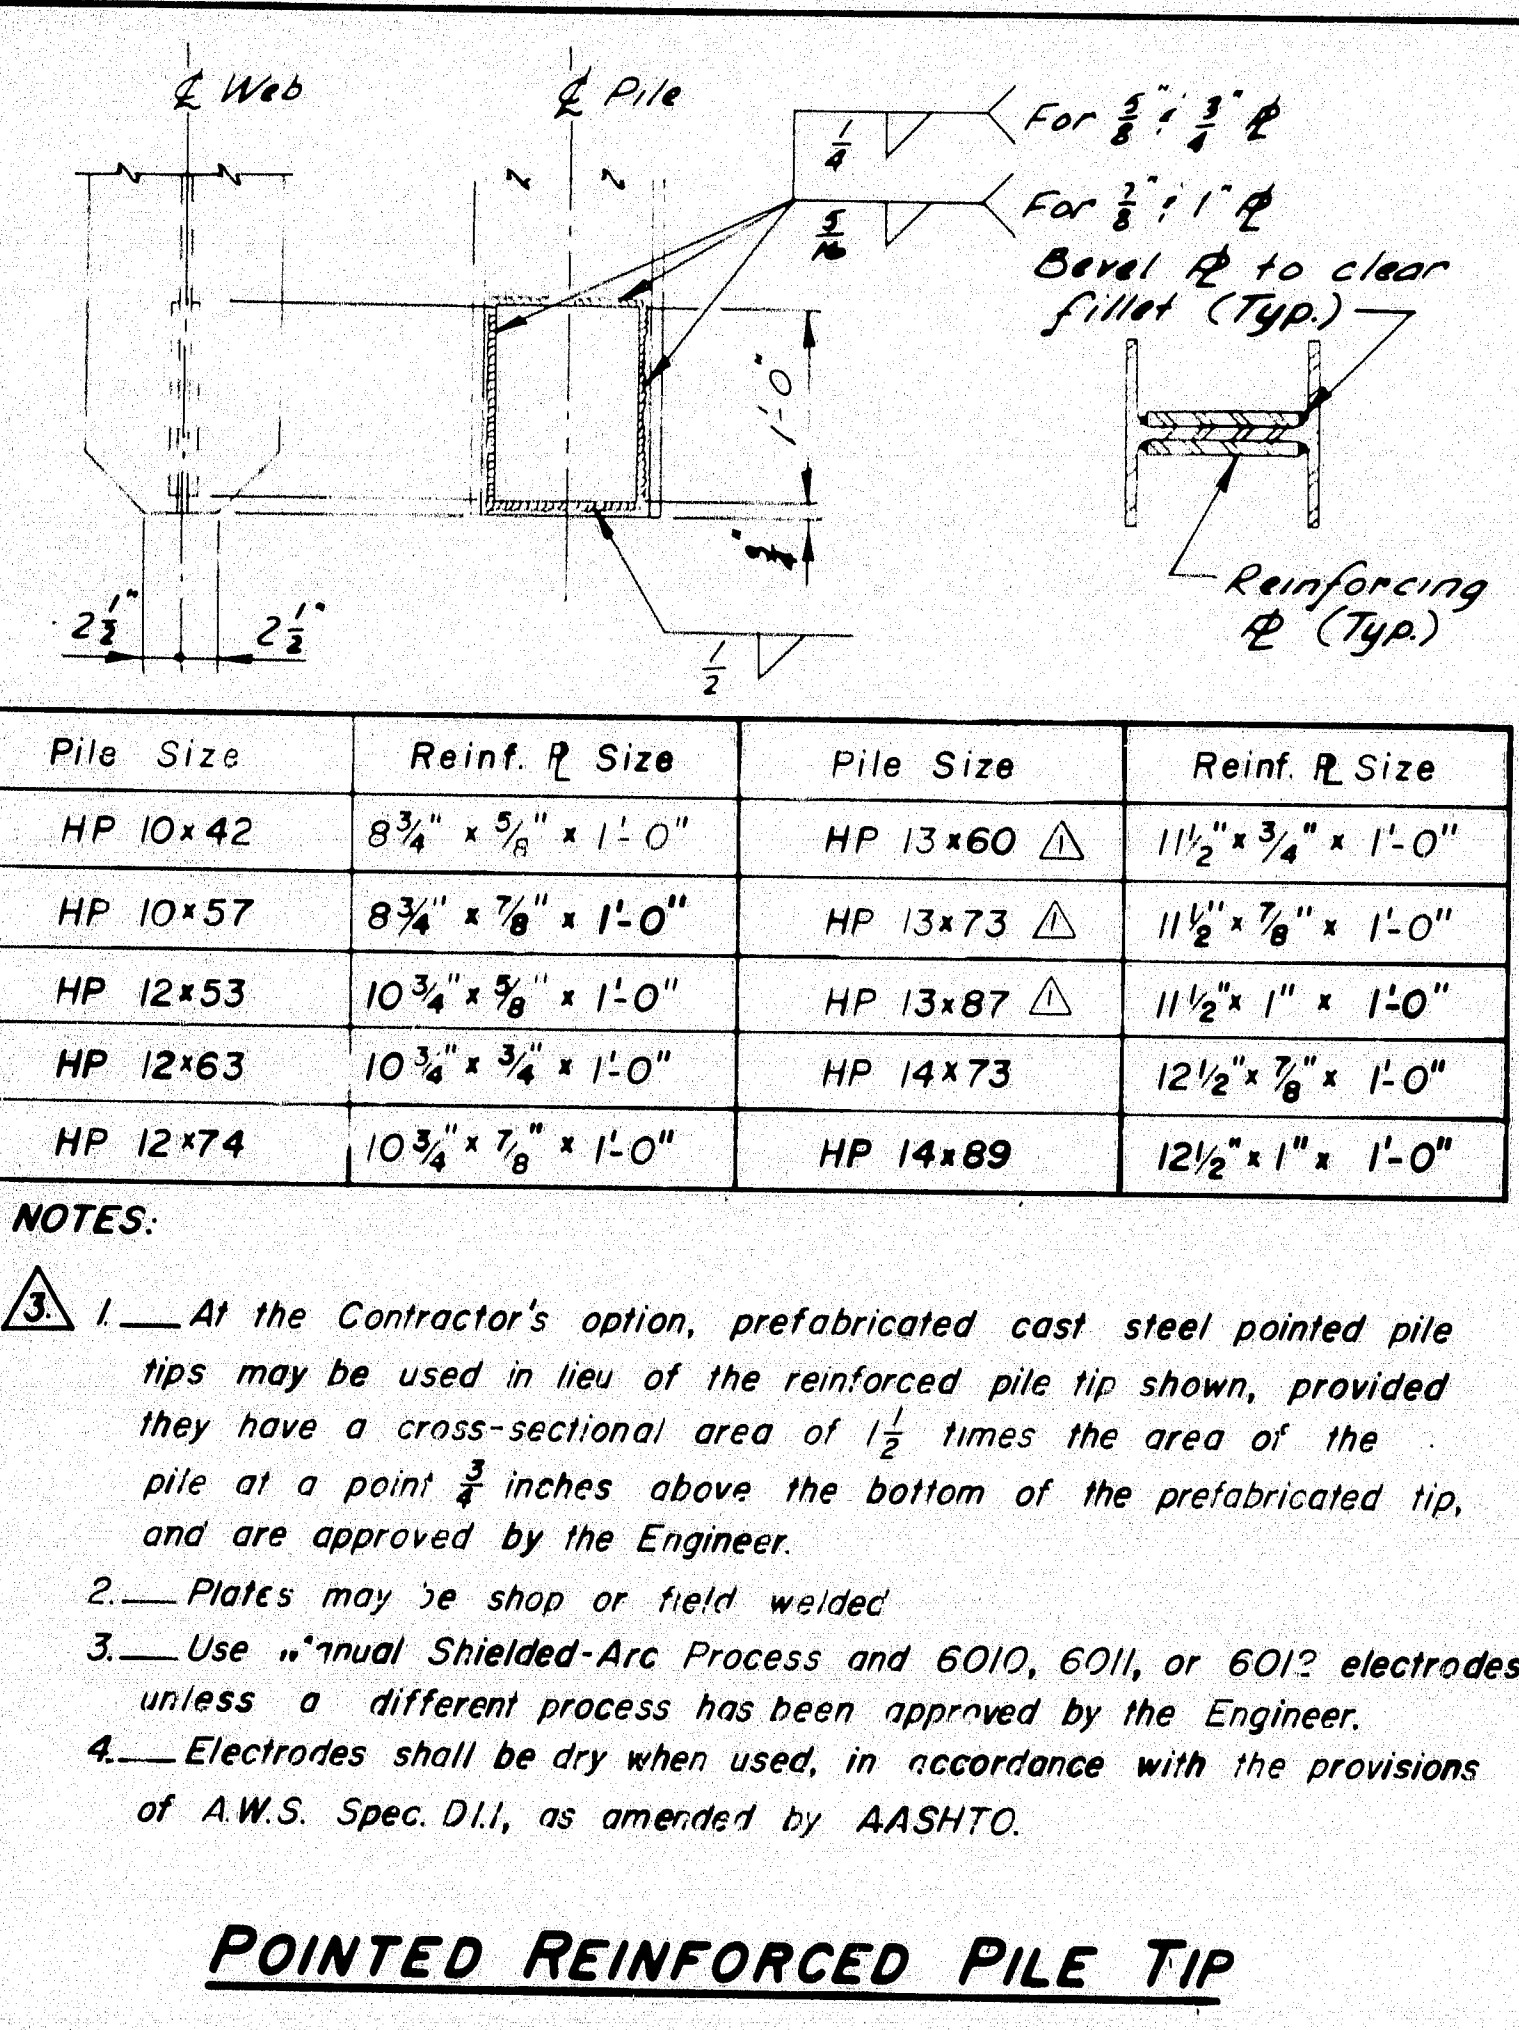 ℄ Web
℄ Pile
1/4
For 5/8" & 3/4" ℙL
5/16
For 7/8" & 1" ℙL
Bevel ℙL to clear
fillet (Typ.)
1'-0"
3/4"
2 1/2"
2 1/2"
1/2
Reinforcing
ℙL (Typ.)
Pile Size Reinf. ℙL Size Pile Size Reinf. ℙL Size
HP 10x42 8 3/4" x 5/8" x 1'-0" HP 13x60 1 11 1/2" x 3/4" x 1'-0"
HP 10x57 8 3/4" x 7/8" x 1'-0" HP 13x73 1 11 1/2" x 7/8" x 1'-0"
HP 12x53 10 3/4" x 5/8" x 1'-0" HP 13x87 1 11 1/2" x 1" x 1'-0"
HP 12x63 10 3/4" x 3/4" x 1'-0" HP 14x73 12 1/2" x 7/8" x 1'-0"
HP 12x74 10 3/4" x 7/8" x 1'-0" HP 14x89 12 1/2" x 1" x 1'-0"
NOTES:
3. 1.__ At the Contractor's option, prefabricated cast steel pointed pile
tips may be used in lieu of the reinforced pile tip shown, provided
they have a cross-sectional area of 1 1/2 times the area of the
pile at a point 3/4 inches above the bottom of the prefabricated tip,
and are approved by the Engineer.
2.__ Plates may be shop or field welded
3.__ Use Manual Shielded-Arc Process and 6010, 6011, or electrodes
unless a different process has been approved by the Engineer.
4.__ Electrodes shall be dry when used, in accordance with the provisions
of A.W.S. Spec. D1.1, as amended by AASHTO.
POINTED REINFORCED PILE TIP